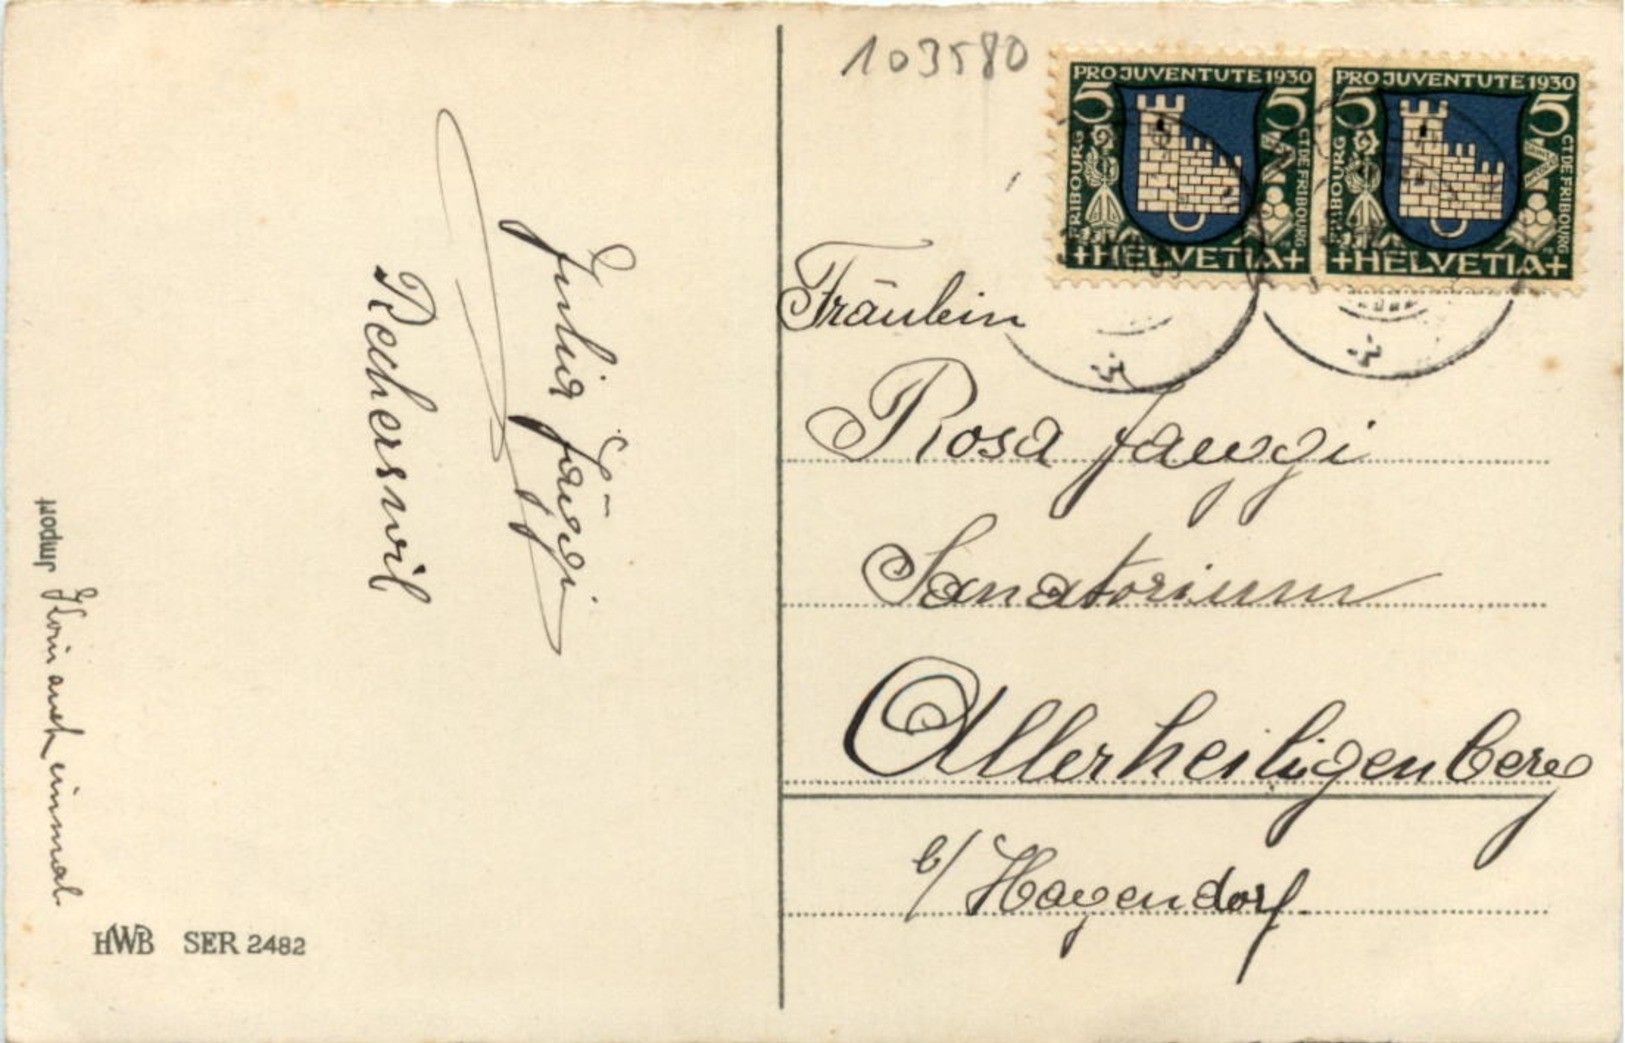 103580
PRO JUVENTUTE 1930
5 5
FRIBOURG
CT. DE FRIBOURG
+HELVETIA+
PRO JUVENTUTE 1930
5 5
FRIBOURG
CT. DE FRIBOURG
+HELVETIA+
Julia Jäggi
Recherswil
Jmport
auch einmal.
HWB SER 2482
Fräulein
Rosa Jaeggi
Sanatorium
Allerheiligenberg
b/ Hagendorf.